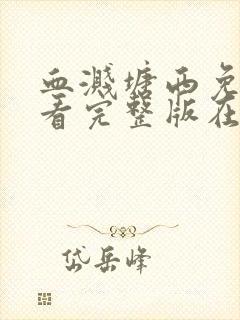 血溅塘西免
看完整版在
岱岳峰